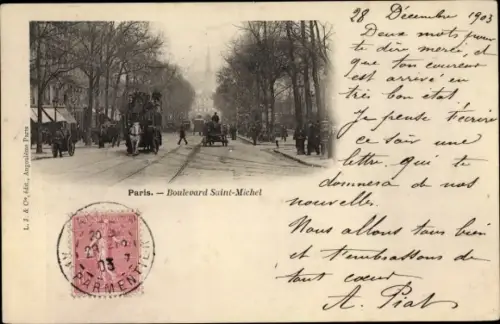 28 Décembre 1903
Deux mots pour
te dire merci, et
que ton courrier
est arrivé en
très bon état.
Je pense t'écrire
ce soir une
lettre qui te
donnera de nos
nouvelles.
Nous allons tous bien
et t'embrassons de
tout coeur
A. Piat
Paris. — Boulevard Saint-Michel
L. J. & Cie, édit., Angoulême Paris
03
PARMENTIER